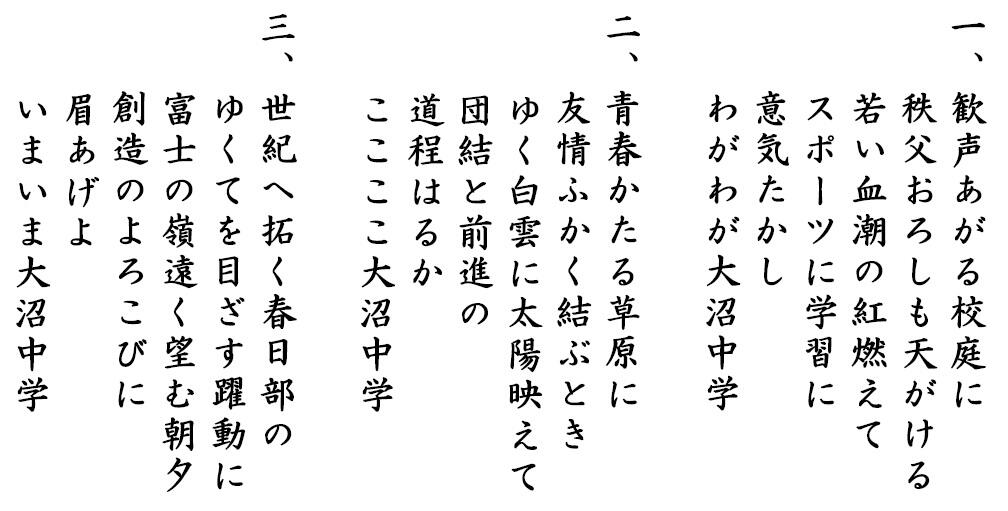 一、
歓声あがる校庭に
秩父おろしも天がける
若い血潮の紅燃えて
スポーツに学習に
意気たかし
わがわが大沼中学
二、
青春かたる草原に
友情ふかく結ぶとき
ゆく白雲に太陽映えて
団結と前進の
道程はるか
ここここ大沼中学
三、
世紀へ拓く春日部の
ゆくてを目ざす躍動に
富士の嶺遠く望む朝夕
創造のよろこびに
眉あげよ
いまいま大沼中学